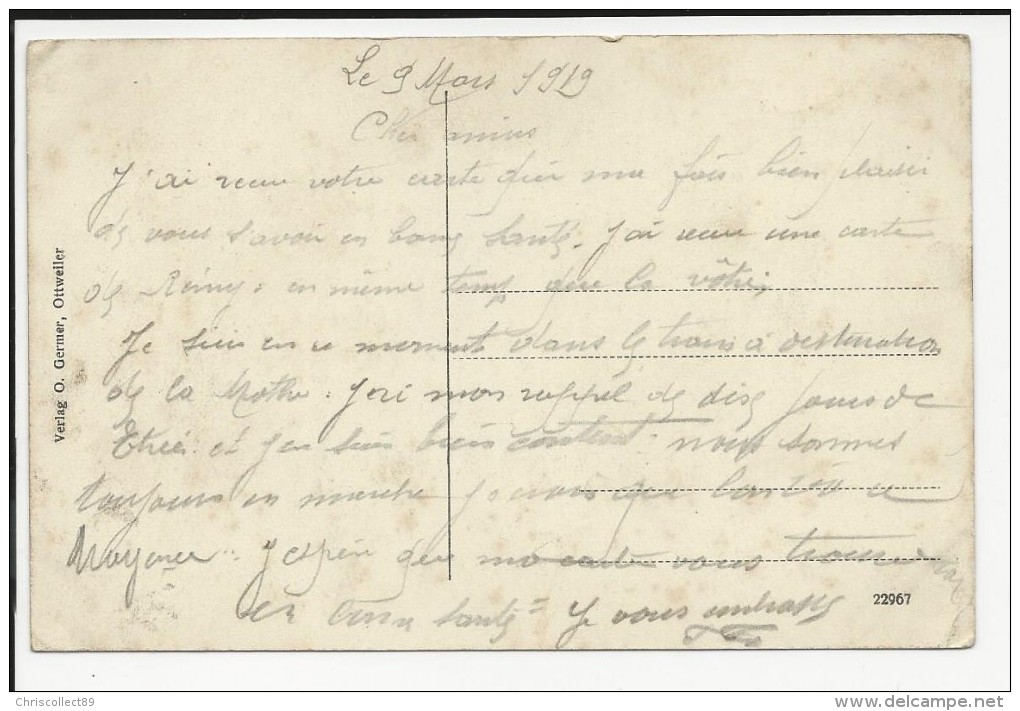 Le 9 Mars 1919
Cher amies
J'ai recue votre carte qui ma fais bien plaisir
de vous savoir en bone santé. J'ai recue une carte
de Rémy en même temp que la vôtre
Je suis en ce moment dans le train a destination
de la Mothe. J'ai mon rappel de dise jours de
et j'en suis bien content. nous sommes
toujours en marche je crois que l'on
Mayence. J'espère que ma carte vous trouve
en bone santé = Je vous embrasse
Verlag O. Germer, Ottweiler
22967
Chriscollect89
www.delcampe.net